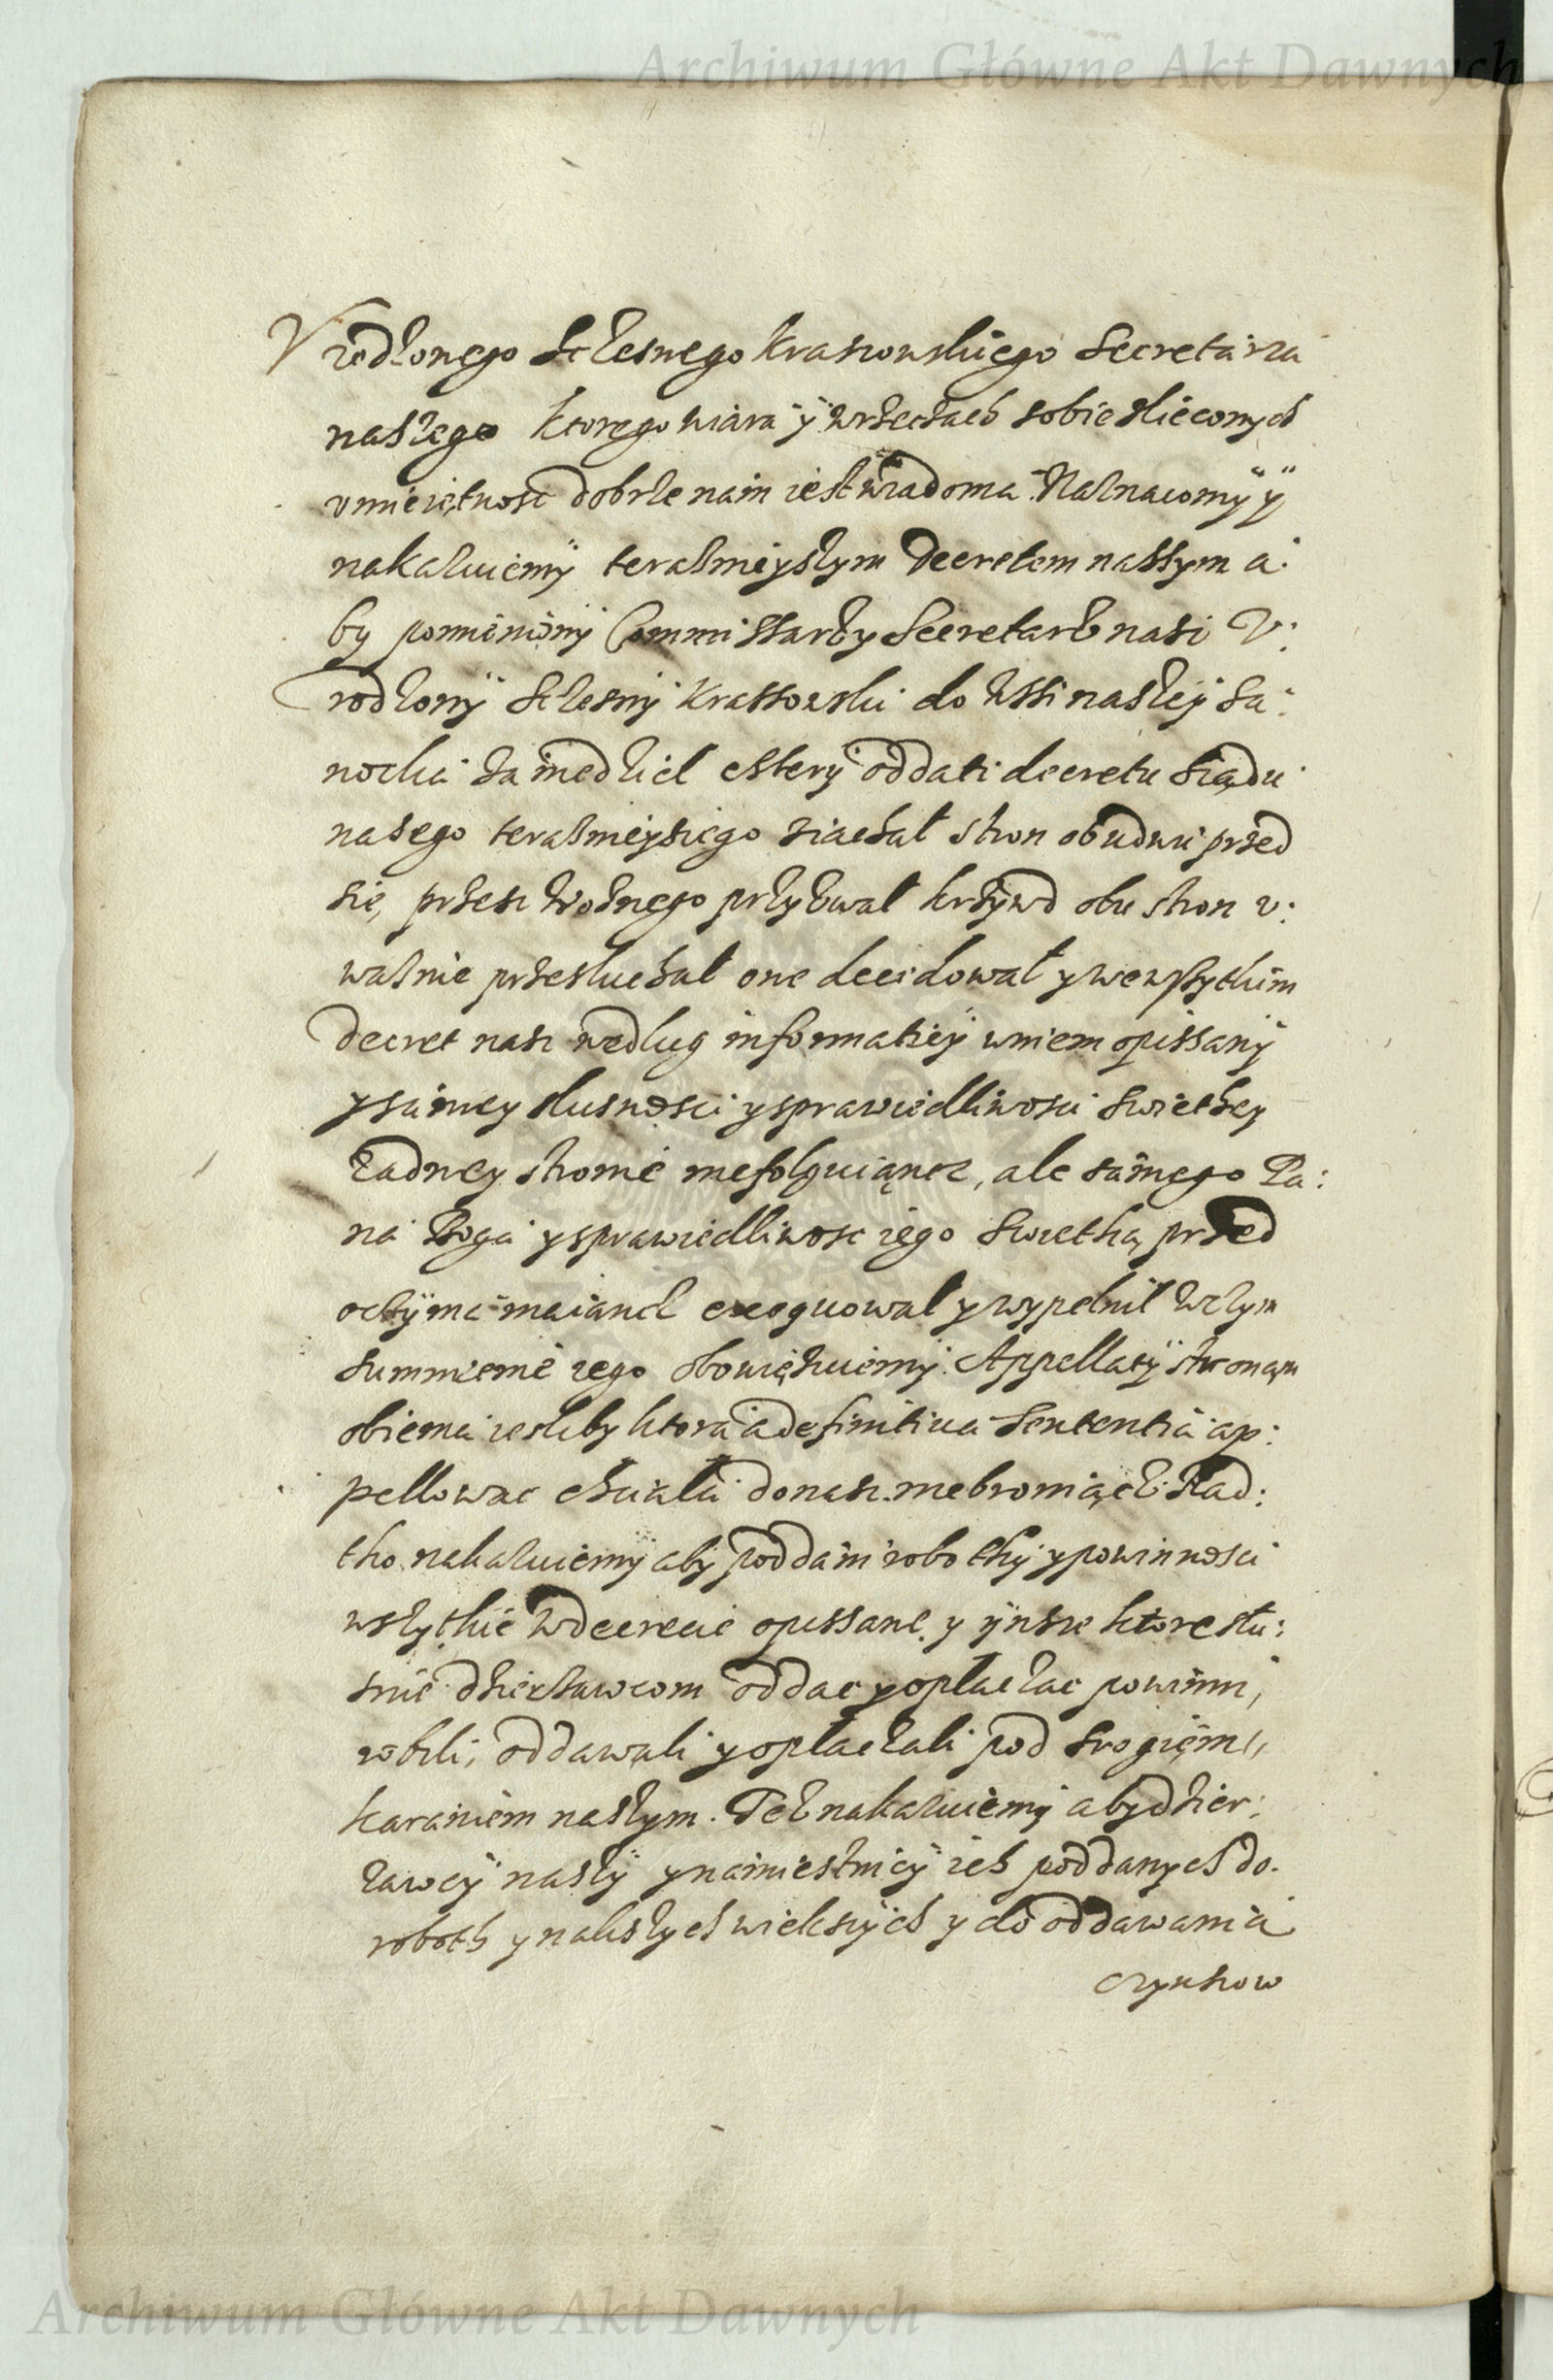 Archiwum Główne Akt Dawnych
Vrodzonego Sczesnego Krasowskiego Secretarza
naszego ktorego wiara y wrzeczach sobie zlieconych
vmieiętnosc dobrze nam iest wiadoma. Naznacomy y
nakazuiemy teraznieyszym Decretem nassym a:
by pomieniony Commissarz y Secretarz nasz V:
rodzony Sczesny Krassowski do wssi naszey Sa:
nocka za niedziel cztery od dati decretu sządu
naszego terazniejszego ziachał stron obudwu przed
się, przesz woznego przyzwał krzywd obu stron v:
waznie przesłuchał one decidował y we wszytkim
decret nasz według informatiey w niem opissany
y samey słusznosci y sprawiedliwosci swiethey
żadney stronie niefolguiąnc, ale samego Pa:
na Boga y sprawiedliwosc iego swiethą przed
oczyma maianc exequował y wypełnił w czym
summienie iego obowięzuiemy. Appellaty stronąm
obiema iesliby ktora a definitiua Sententia ap:
pellowac chciała do nasz nie broniącz. Nad:
tho nakazuiemy aby poddani robothy y powinnosci
wszythkie w decrecie opissane y ynsze ktore słu:
sznie dzierzawcom oddac y opłaczac powinni,
robili, oddawali y opłaczali pod srogięm
karaniem naszym. Też nakazuiemy aby dzier:
zawcy naszy y namiestnicy ich poddanych do
roboth y naliszych wieksych y do oddawania
czynszow
Archiwum Główne Akt Dawnych